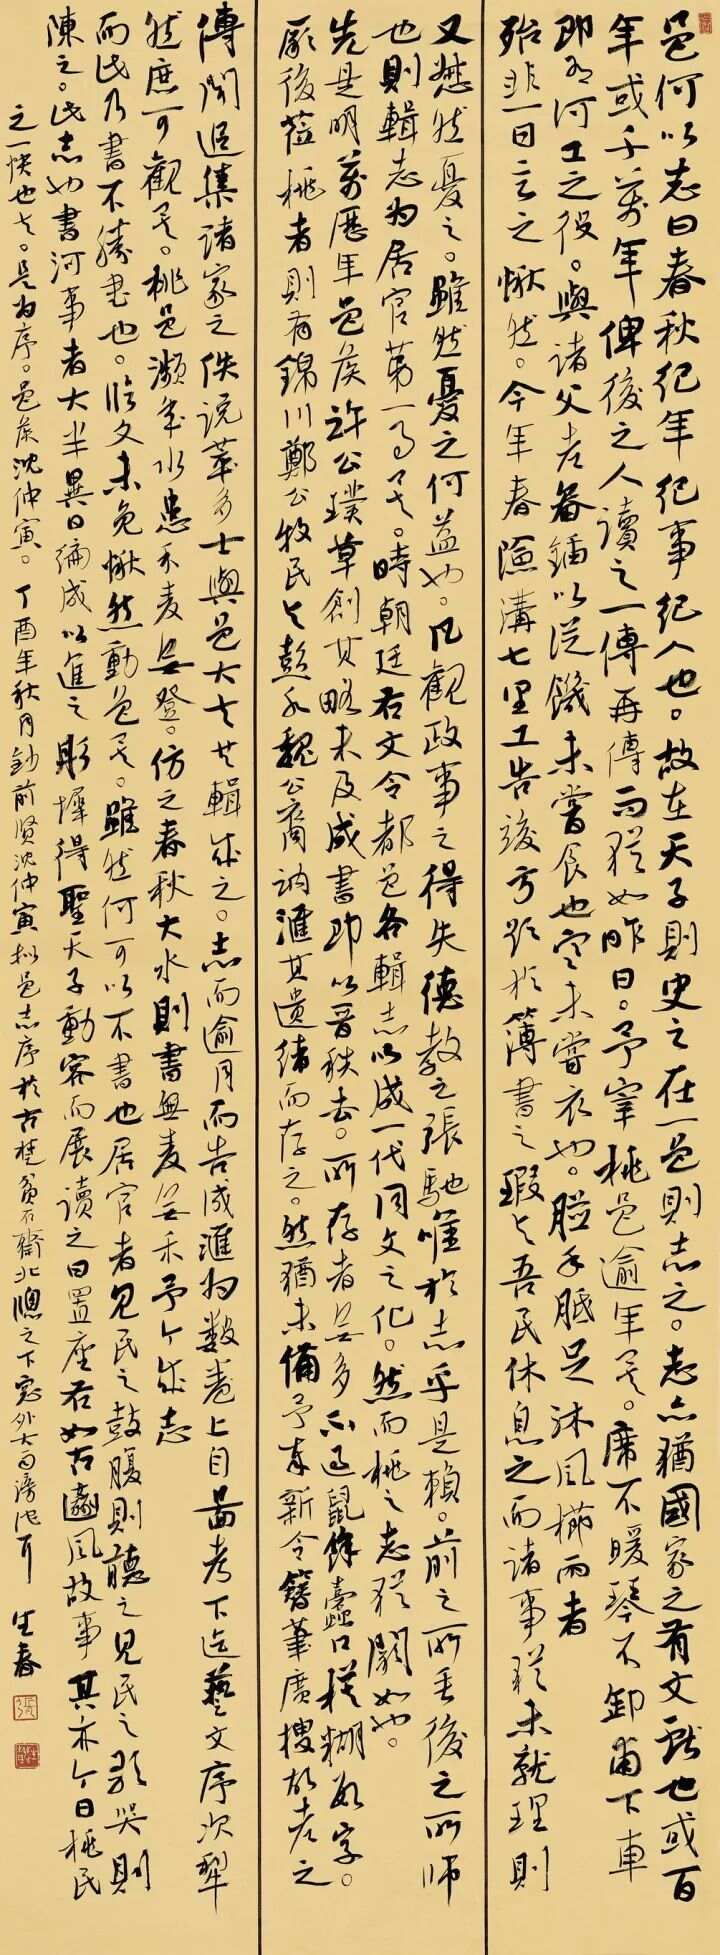 邑何以志曰春秋纪年纪事纪人也。故在天子则史之在一邑则志之。志亦猶國家之有文献也或百
年或千萬年俾後之人讀之一傳再傳而猶如昨日。予宰桃邑逾年矣。席不暖琴不卸甫下車
即有河工之役。與諸父老畚锸以從饑未嘗食也寒未嘗衣也。胼手胝足沐風櫛雨者
殆非一日言之愀然。今年春濬溝七里工告竣方頭於簿書之暇与吾民休息之而諸事猶未就理則
又愀然憂之。雖然憂之何益也。凡觀政事之得失德教之張馳唯於志乎是賴。前之所垂後之所师
也則輯志为居官第一事矣。時朝廷右文令都邑各輯志以成一代同文之化。然而桃之志猶闕如也。
先是明萬歷年邑侯許公璞草創其略未及成書即以晋秩去。所存者無多不過鼠餘蠹口模糊數字。
厥後蒞桃者則有錦川鄭公牧民与彭水魏公裔訥滙其遺緒而存之。然猶未備予奉新令簪筆廣搜故老之
傳聞追集諸家之佚説萃多士與邑大夫共輯成之。志而逾月而告成滙为數卷上自圖考下迄藝文序次犁
然庶可觀矣。桃邑瀕年水患禾麦無登。仿之春秋大水則書無麦無禾予今成志
而此乃書不勝書也。臨文未免愀然動色矣。雖然何可以不書也居官者見民之鼓腹則聽之見民之歌哭則
陳之。此志也書河事者大半異日編成以進之彤墀得聖天子動容而展讀之曰置座右如古豳風故事其亦今日桃民
之一快也夫。是为序。邑侯沈仲寅。丁酉年秋月鈔前賢沈仲寅拟邑志序於古楚貧石齋北牕之下窓外大雨滂沱耳 生春